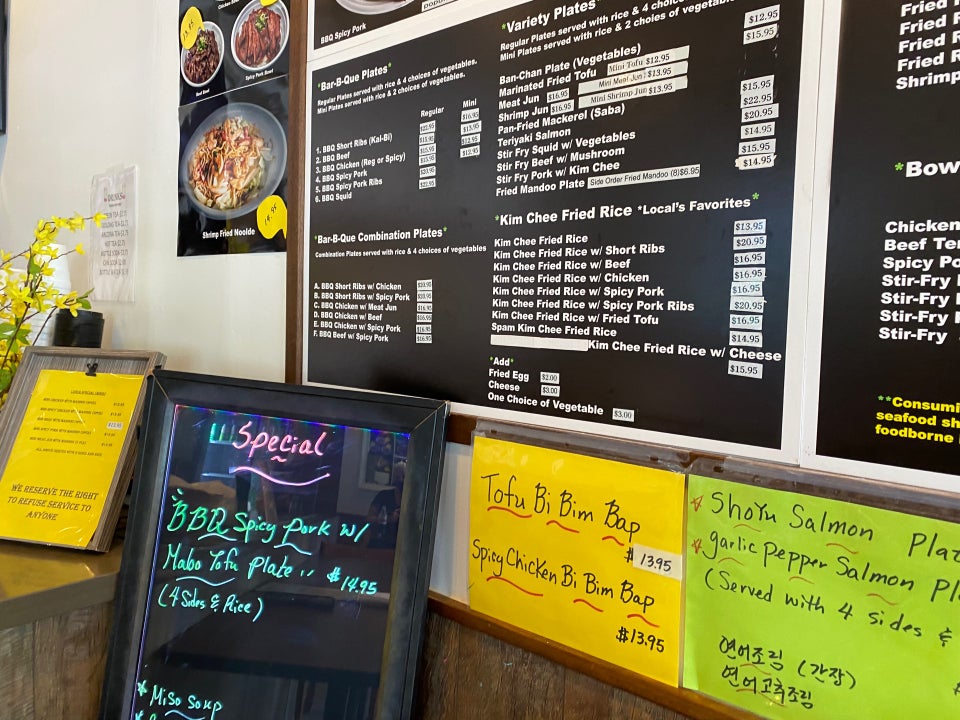 BBQ Spicy Pork
Spicy Pork Bowl
Shrimp Fried Noolde
*Bar-B-Que Plates*
Regular Plates served with rice & 4 choices of vegetables.
Mini Plates served with rice & 2 choices of vegetables.
Regular Mini
1. BBQ Short Ribs (Kal-Bi)
2. BBQ Beef
3. BBQ Chicken (Reg or Spicy)
4. BBQ Spicy Pork
5. BBQ Spicy Pork Ribs
6. BBQ Squid
*Bar-B-Que Combination Plates*
Combination Plates served with rice & 4 choices of vegetables
A. BBQ Short Ribs w/ Chicken $20.95
B. BBQ Short Ribs w/ Spicy Pork $20.95
C. BBQ Chicken w/ Meat Jun $16.95
D. BBQ Chicken w/ Beef $16.95
E. BBQ Chicken w/ Spicy Pork $16.95
F. BBQ Beef w/ Spicy Pork $16.95
*Variety Plates*
Regular Plates served with rice & 4 choices of
Mini Plates served with rice & 2 choices of vegetable
$12.95
$15.95
Ban-Chan Plate (Vegetables)
Marinated Fried Tofu Mini Tofu $12.95
Meat Jun $16.95 Mini Meat Jun $13.95
Shrimp Jun $16.95 Mini Shrimp Jun $13.95
Pan-Fried Mackerel (Saba) $15.95
Teriyaki Salmon $22.95
Stir Fry Squid w/ Vegetables $20.95
Stir Fry Beef w/ Mushroom $14.95
Stir Fry Pork w/ Kim Chee $15.95
Fried Mandoo Plate Side Order Fried Mandoo (8)$6.95 $14.95
*Kim Chee Fried Rice *Local's Favorites*
Kim Chee Fried Rice $13.95
Kim Chee Fried Rice w/ Short Ribs $20.95
Kim Chee Fried Rice w/ Beef $16.95
Kim Chee Fried Rice w/ Chicken $16.95
Kim Chee Fried Rice w/ Spicy Pork $16.95
Kim Chee Fried Rice w/ Spicy Pork Ribs $20.95
Kim Chee Fried Rice w/ Fried Tofu $16.95
Spam Kim Chee Fried Rice $14.95
Kim Chee Fried Rice w/ Cheese $15.95
*Add*
Fried Egg $2.00
Cheese $3.00
One Choice of Vegetable $3.00
Fried
Fried R
Fried R
Fried R
Shrimp
*Bow
Chicken
Beef Ter
Spicy Po
Stir-Fry
Stir-Fry
Stir-Fry
Stir-Fry
**Consumi
seafood sh
foodborne
DRINKS
WE RESERVE THE RIGHT
TO REFUSE SERVICE TO
ANYONE
Special
BBQ Spicy Pork w/
Mabo Tofu Plate $14.95
(4 Sides & Rice)
* Miso Soup
Tofu Bi Bim Bap
$13.95
Spicy Chicken Bi Bim Bap
$13.95
Shoyu Salmon Plat
garlic Pepper Salmon Pl
(Served with 4 sides &
연어조림 (간장)
연어고추조림